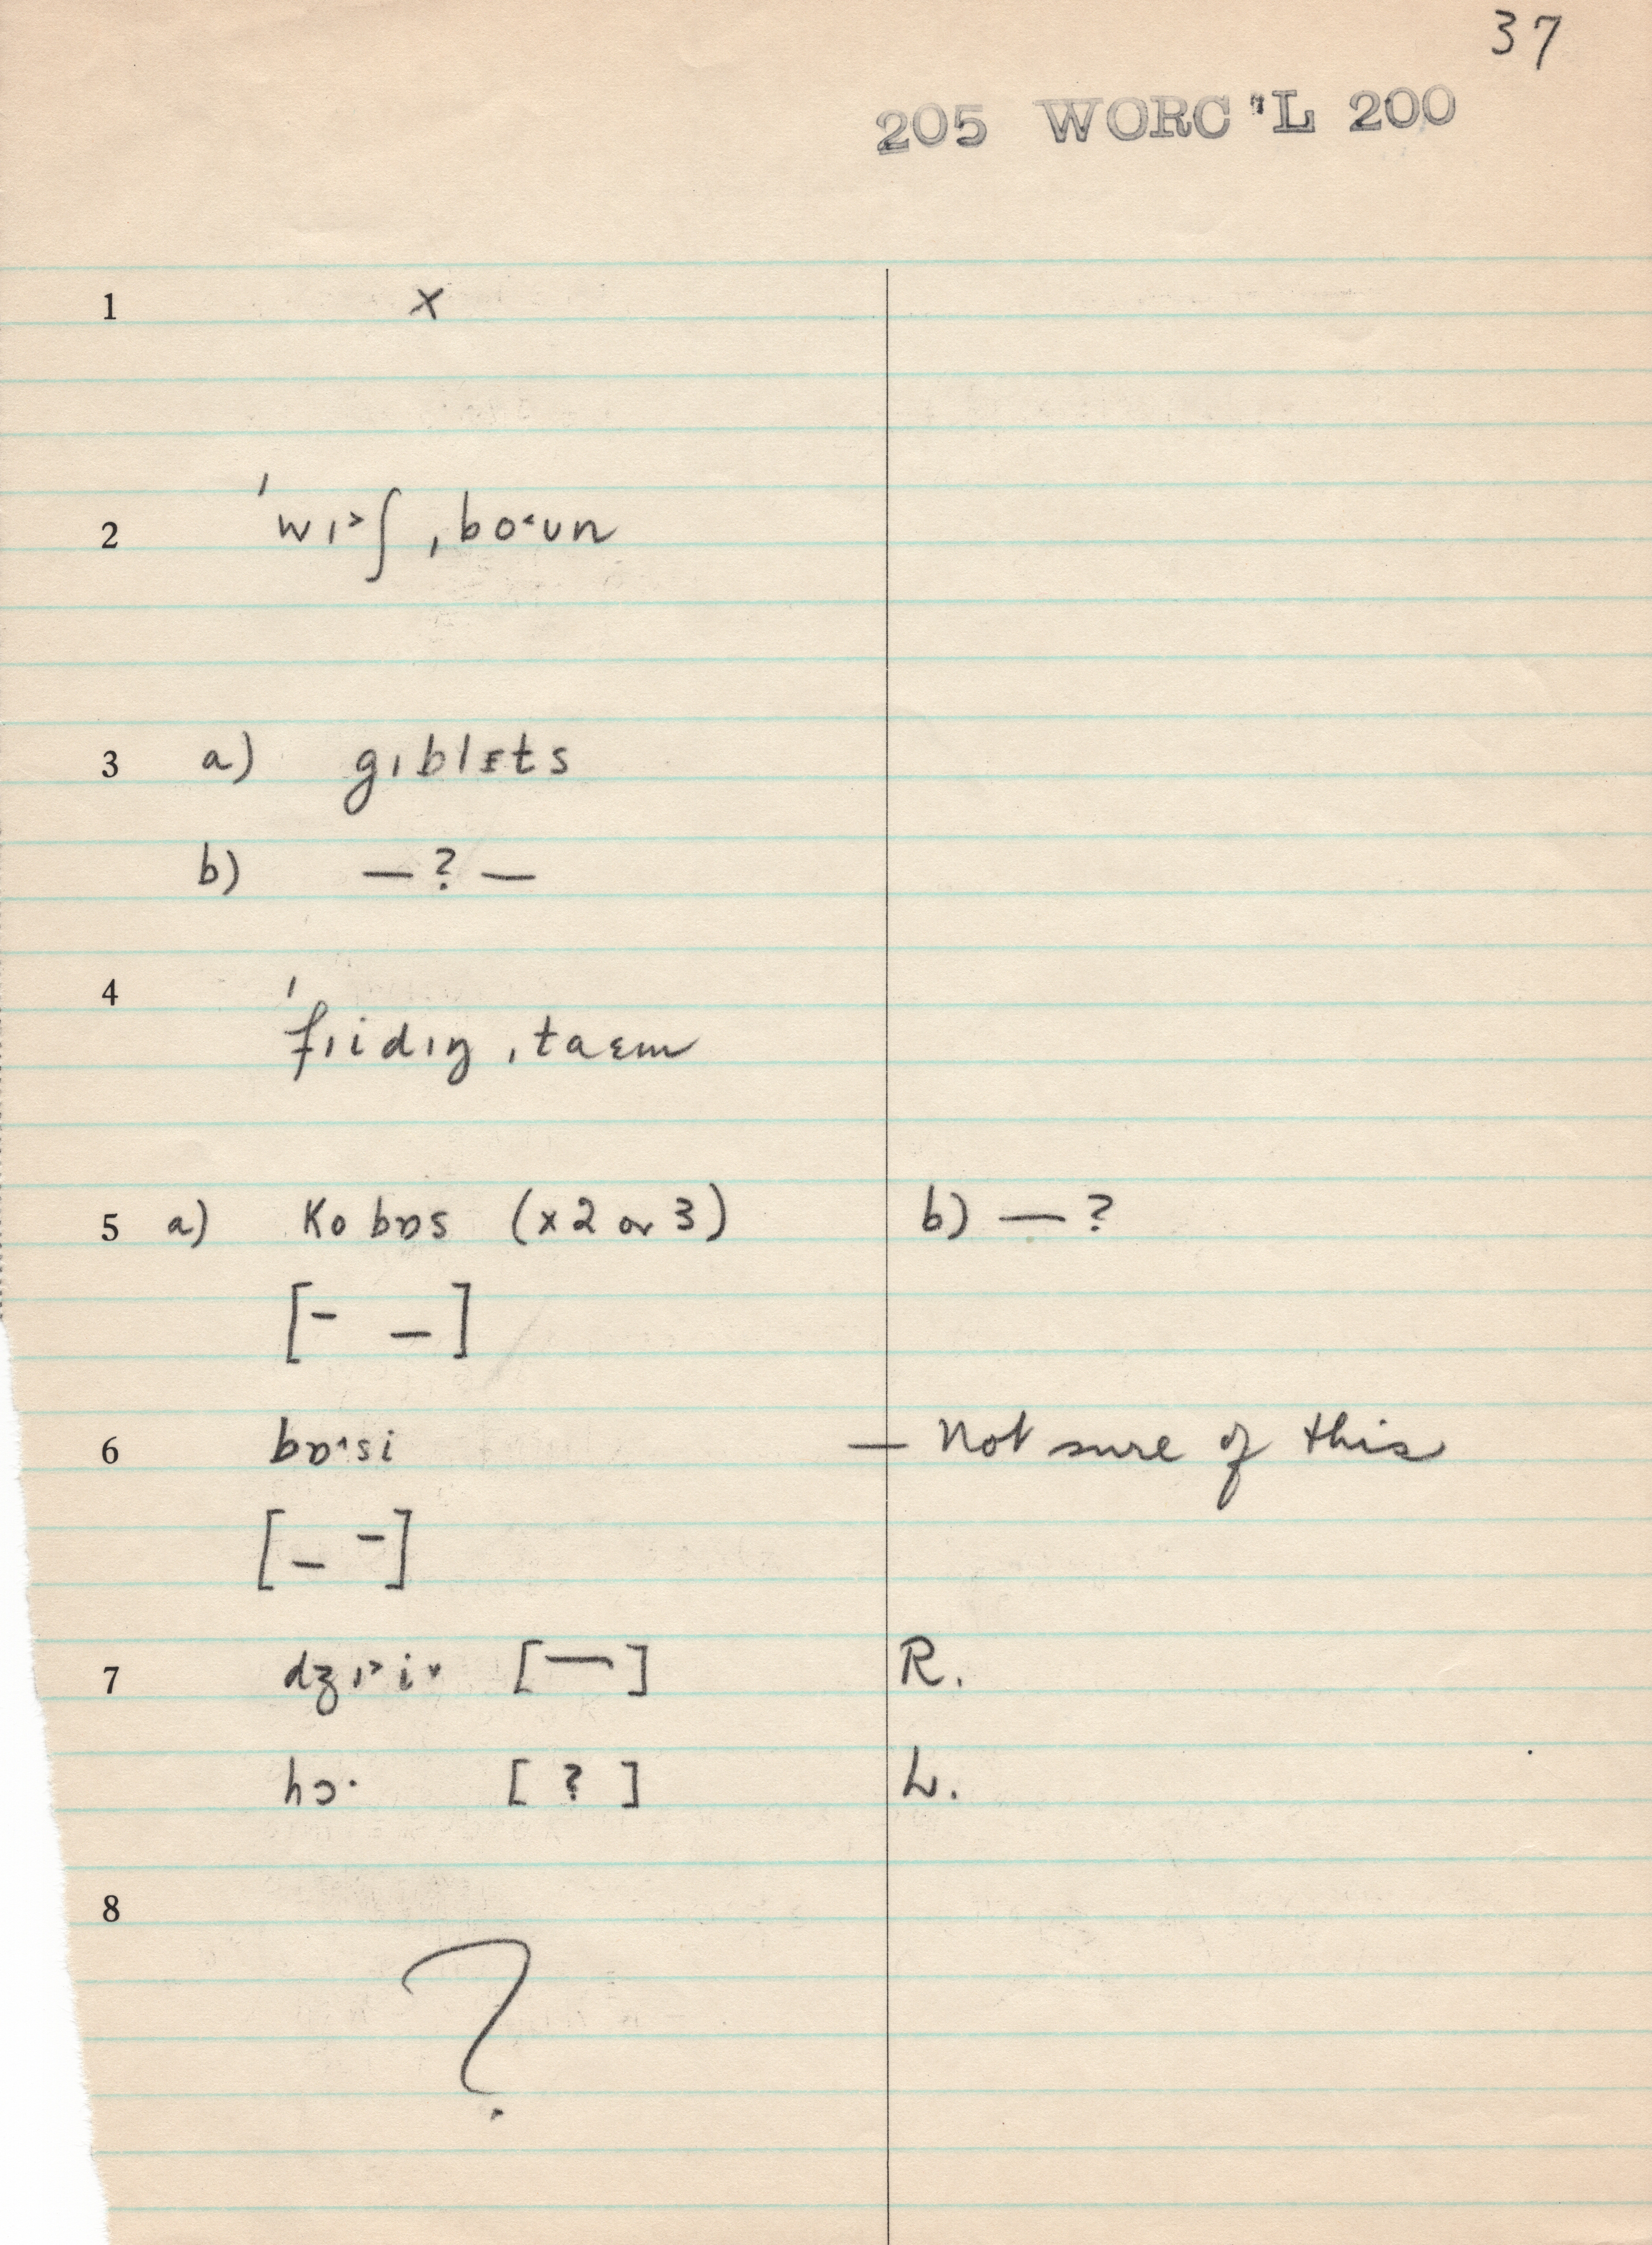 37
205 WORC'L 200
1 x
2 ˈwɪ˃ʃ ˌbo˂ʊn
3 a) gɪblɪts
b) — ? —
4 ˈfɪidɪŋ ˌtaɛm
5 a) Kobɒs (x2 or 3) b) — ?
[– –]
6 bɒ˄si — Not sure of this
[– –]
7 dʒɪ˃i˅ [—] R.
hɔ· [ ? ] L.
8
?